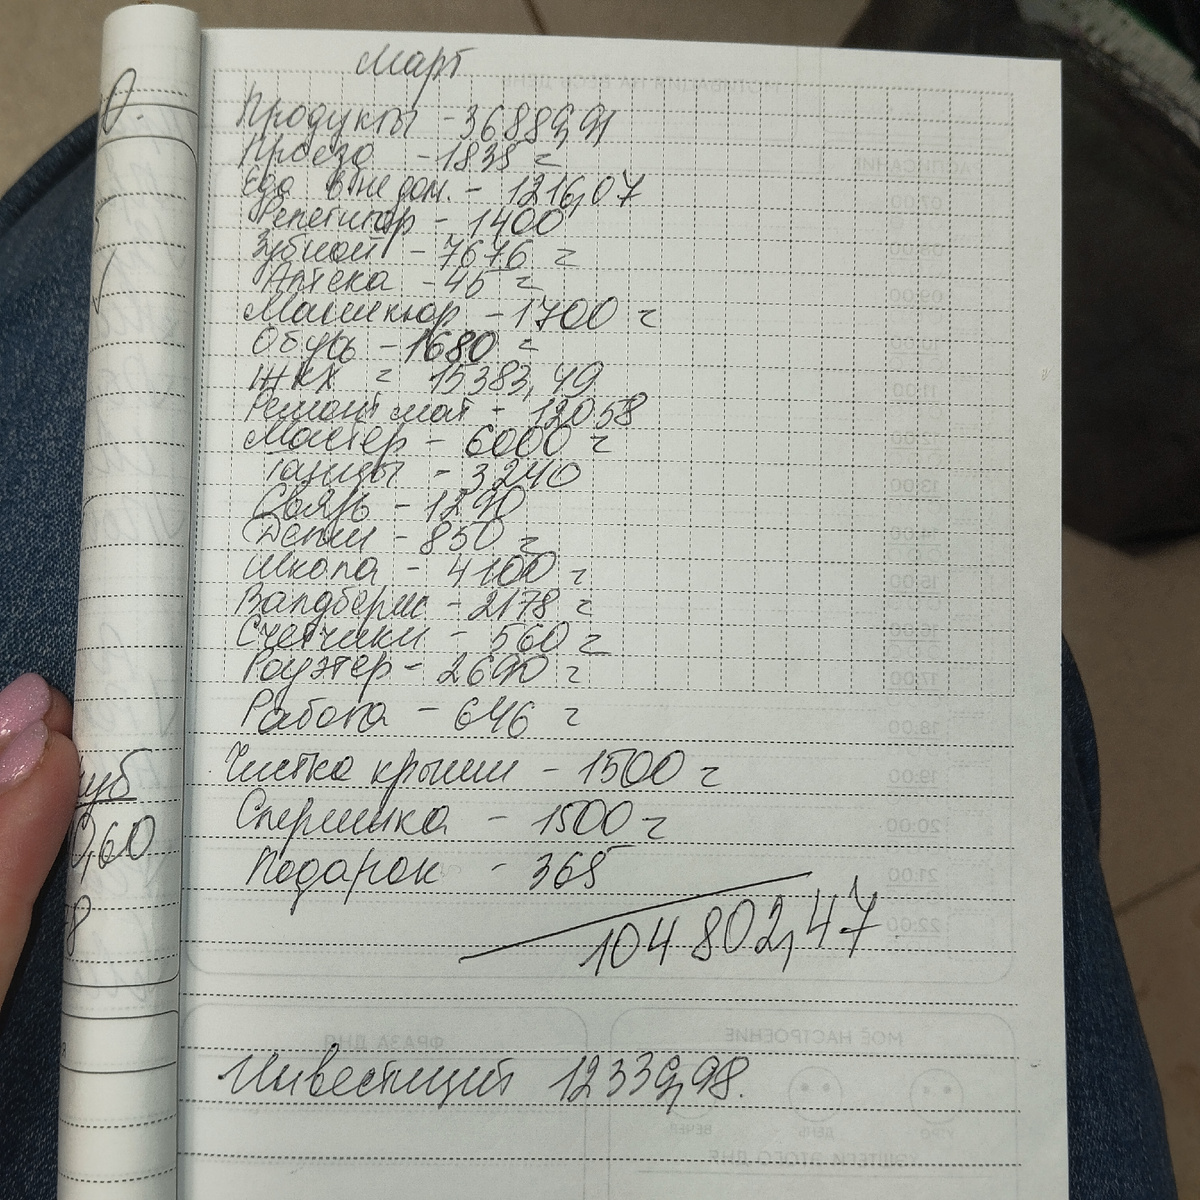 Март
Продукты - 36889,91
Проезд - 1838 =
Еда вне дом. - 1216,07
Репетитор - 1400
Зубной - 7676 =
Аптека - 45 =
Маникюр - 1700 =
Обувь - 1680 =
ЖКХ = 15383,49
Ремонт мат - 12058
Мастер - 6000 =
Танцы - 3240
Связь - 1290
Детям - 850 =
Школа - 4100 =
Валдберис - 2178 =
Счетчики - 560 =
Роуэтер - 2690 =
Работа - 646 =
Чистка крыши - 1500 =
Спермика - 1500 =
Подарок - 365
104 802,47
Инвестиций 12339,98.
0,60
78